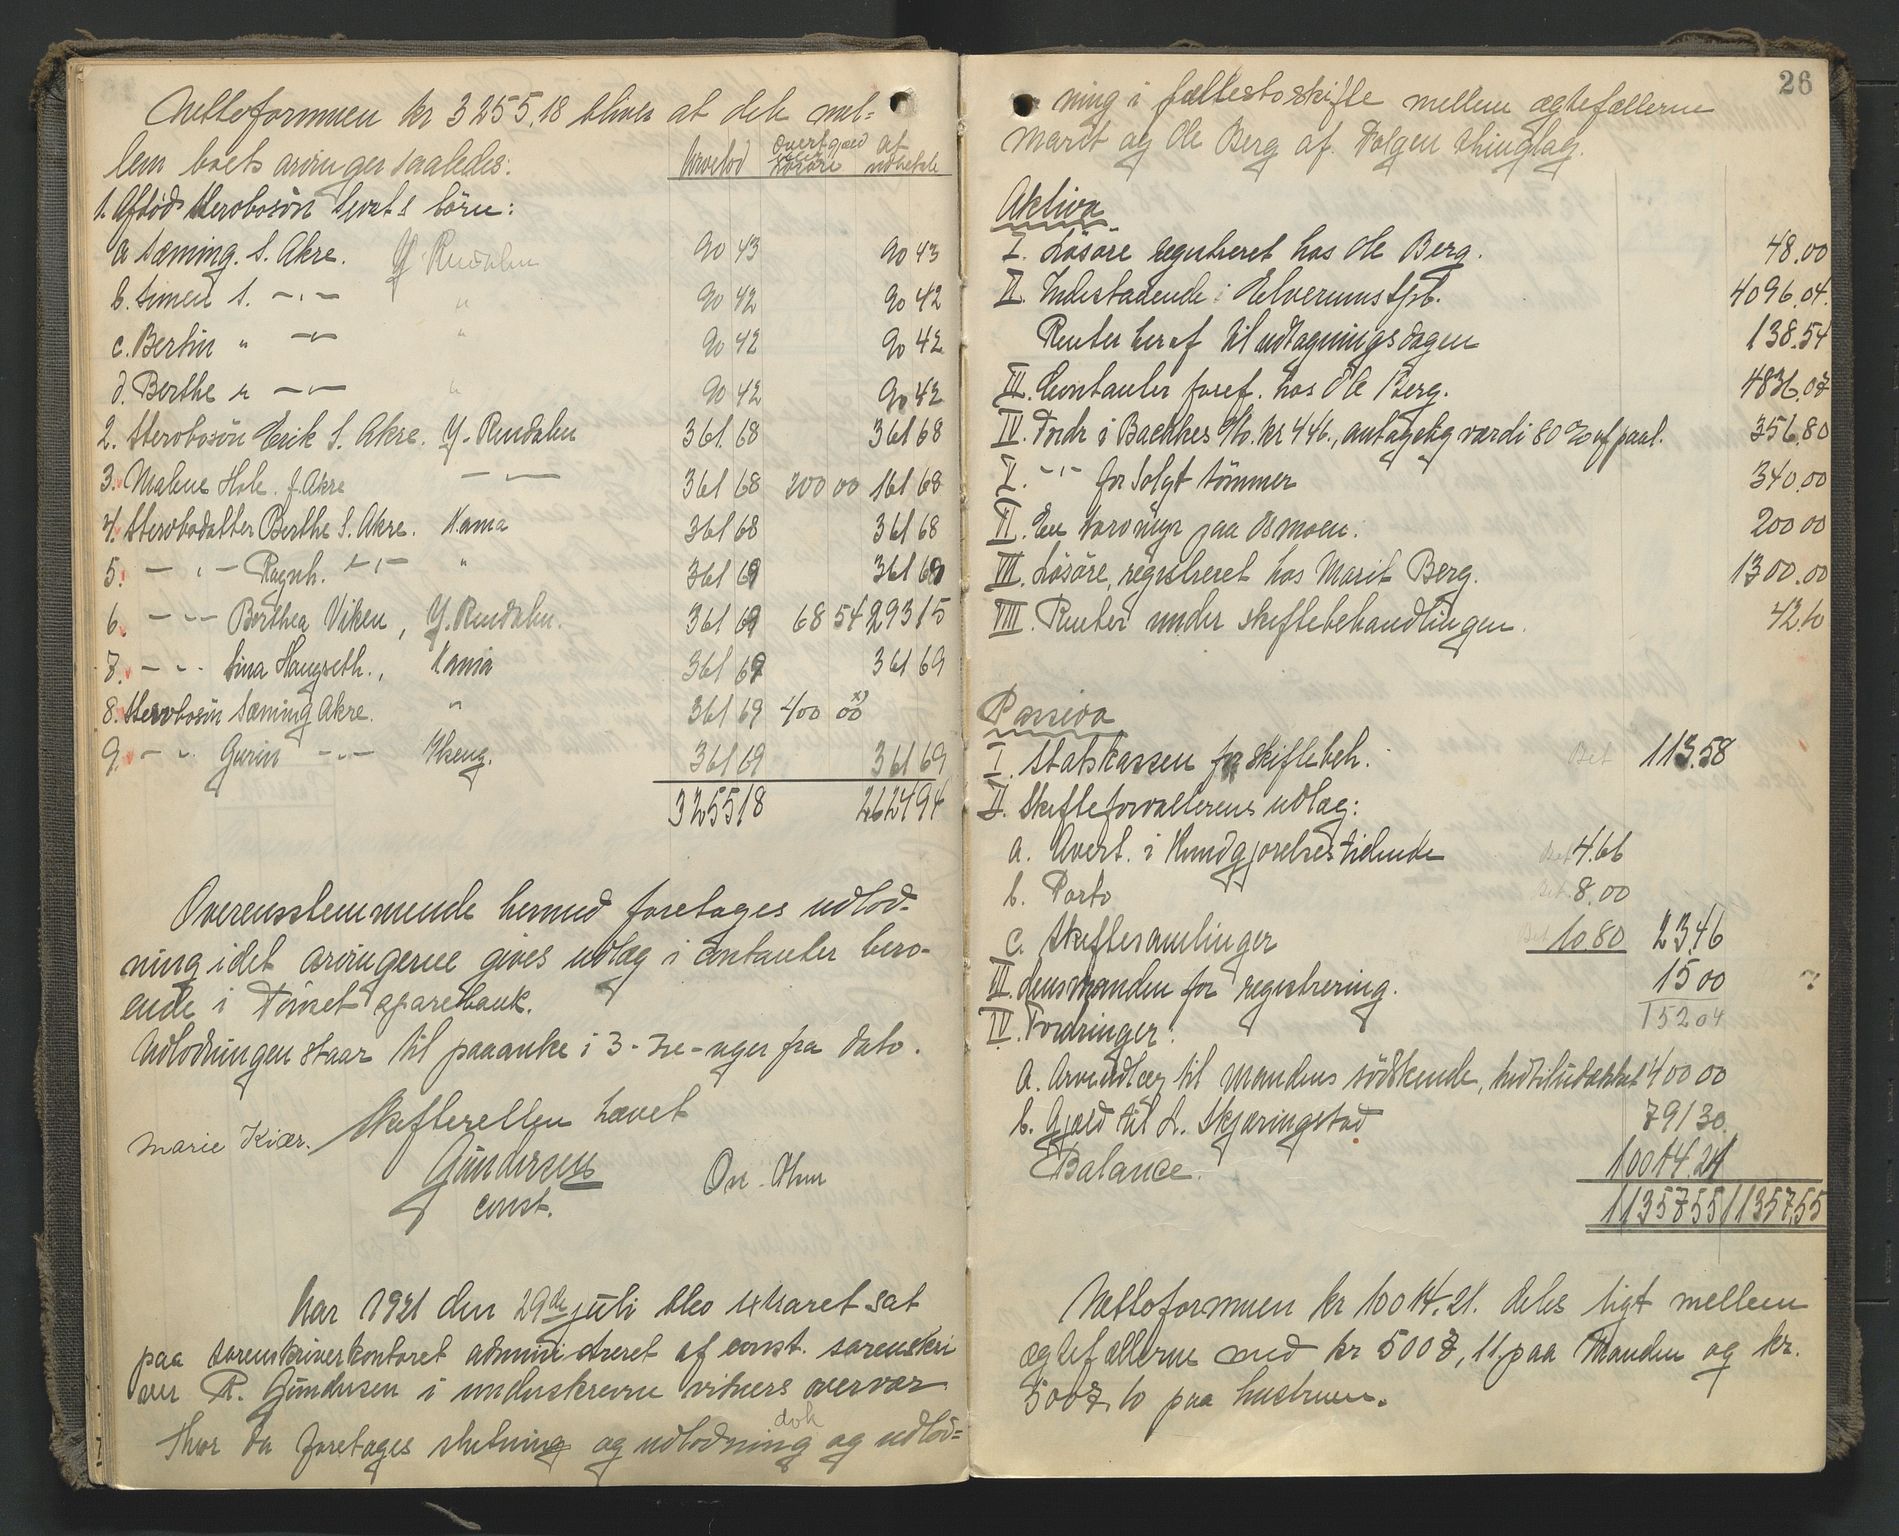 Nettoformuen kr 3255,18 bliver at dele mel-
lem boets arvinger saaledes:
Arvelod overt. gjæld løsøre at udbetale
1. Afdød sterobosøn Sjvrts børn:
a Sæming. S. Akre. Y. Rendalen 90 43 90 43
b. Simen S. -"- " 90 42 90 42
c. Bertin " -"- " 90 42 90 42
d. Berthe " -"- " 90 42 90 42
2. Sterobosøn Erik S. Akre. Y. Rendalen 361 68 361 68
3. Malene Hole f. Akre -"- 361 68 200 00 161 68
4. Sterobodatter Berthe S. Akre. Kama 361 68 361 68
5. - " - Ragnh. -"- " 361 69 361 69
6. - " - Berthea Viken, Y. Rendalen. 361 69 68 54 293 15
7. - " - Sina Haugseth., Kama 361 69 361 69
8. Sterobosøn Sæming Akre. " 361 69 400 00 x)
9. - " - Gurin -"- Theng. 361 69 361 69
3255 18 2624 94
Overensstemmende hermed foretages udlod-
ning idet arvingerne gives udlæg i contanter bero-
ende i Tønset sparebank.
Udlodningen staar til paaanke i 3 - tre - uger fra dato.
Skifteretten hævet
Marie Kiær. Gundersen
const.
Aar 1921 den 29de juli blev skifteret sat
paa sorenskriverkontoret administreret af const. sorenskri
ver R. Gundersen i underskrevne vitners overvær
dok
Hvor da foretages slutning og udlodning og udlod-
26
ning i fællesboskifte mellem ægtefællerne
Marit og Ole Berg af Tolgen thinglag.
Aktiva
I. Løsøre registreret hos Ole Berg. 48.00
II. Indestaaende i Elverums Spb. 4096.04.
Renter heraf til udtagningsdagen 138.54
III. Contanter foref. hos Ole Berg. 4836.07
IV. Fordr i Backkes Sb. kr 446., antagelig værdi 80% af paal. 356.80
V. -"- for solgt tømmer 340.00
VI. En torvmyr paa Osmoen. 200 00
VII. Løsøre, registreret hos Marit Berg. 1300.00
VIII. Renter under skiftebehandlingen. 42.10
Passiva
I. Statskassen for skiftebeh. Bet 113.58
II. Skifteforvalterens udlæg:
a. Avert. i Kundgjørelsestidende Bet 4.66
b. Porto Bet. 8.00
c. Skiftesamlinger Bet 10 80 23.46
III. Lensmanden for registrering. 15 00
152 04
IV. Fordringer:
a. Arveudlæg til mandens sødskende, indtil udækket 400 00
b. Gjæld til L. Skjæringstad 791 30.
Balance. 10014.21
11357 55 11357,55
Nettoformuen kr 10014.21. deles ligt mellem
ægtefællerne med kr 5007,11 paa Manden og kr.
5007,10 paa hustruen.